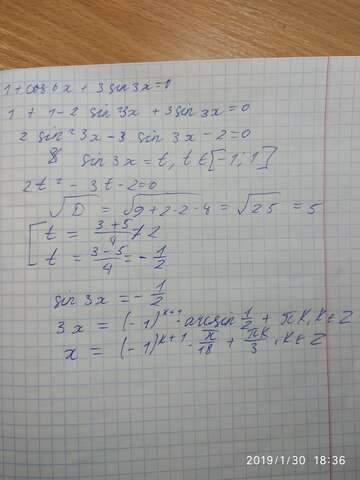 1 + cos 6x + 3 sin 3x = 1
1 + 1 - 2 sin² 3x + 3 sin 3x = 0
2 sin² 3x - 3 sin 3x - 2 = 0
sin 3x = t, t ∈ [-1; 1]
2t² - 3t - 2 = 0
√D = √9+2·2·4 = √25 = 5
[ t = (3+5)/4 ≠ 2
t = (3-5)/4 = - 1/2
sin 3x = - 1/2
3x = (-1)^(k+1) · arcsin 1/2 + πk, k ∈ Z
x = (-1)^(k+1) · π/18 + πk/3, k ∈ Z
2019/1/30 18:36